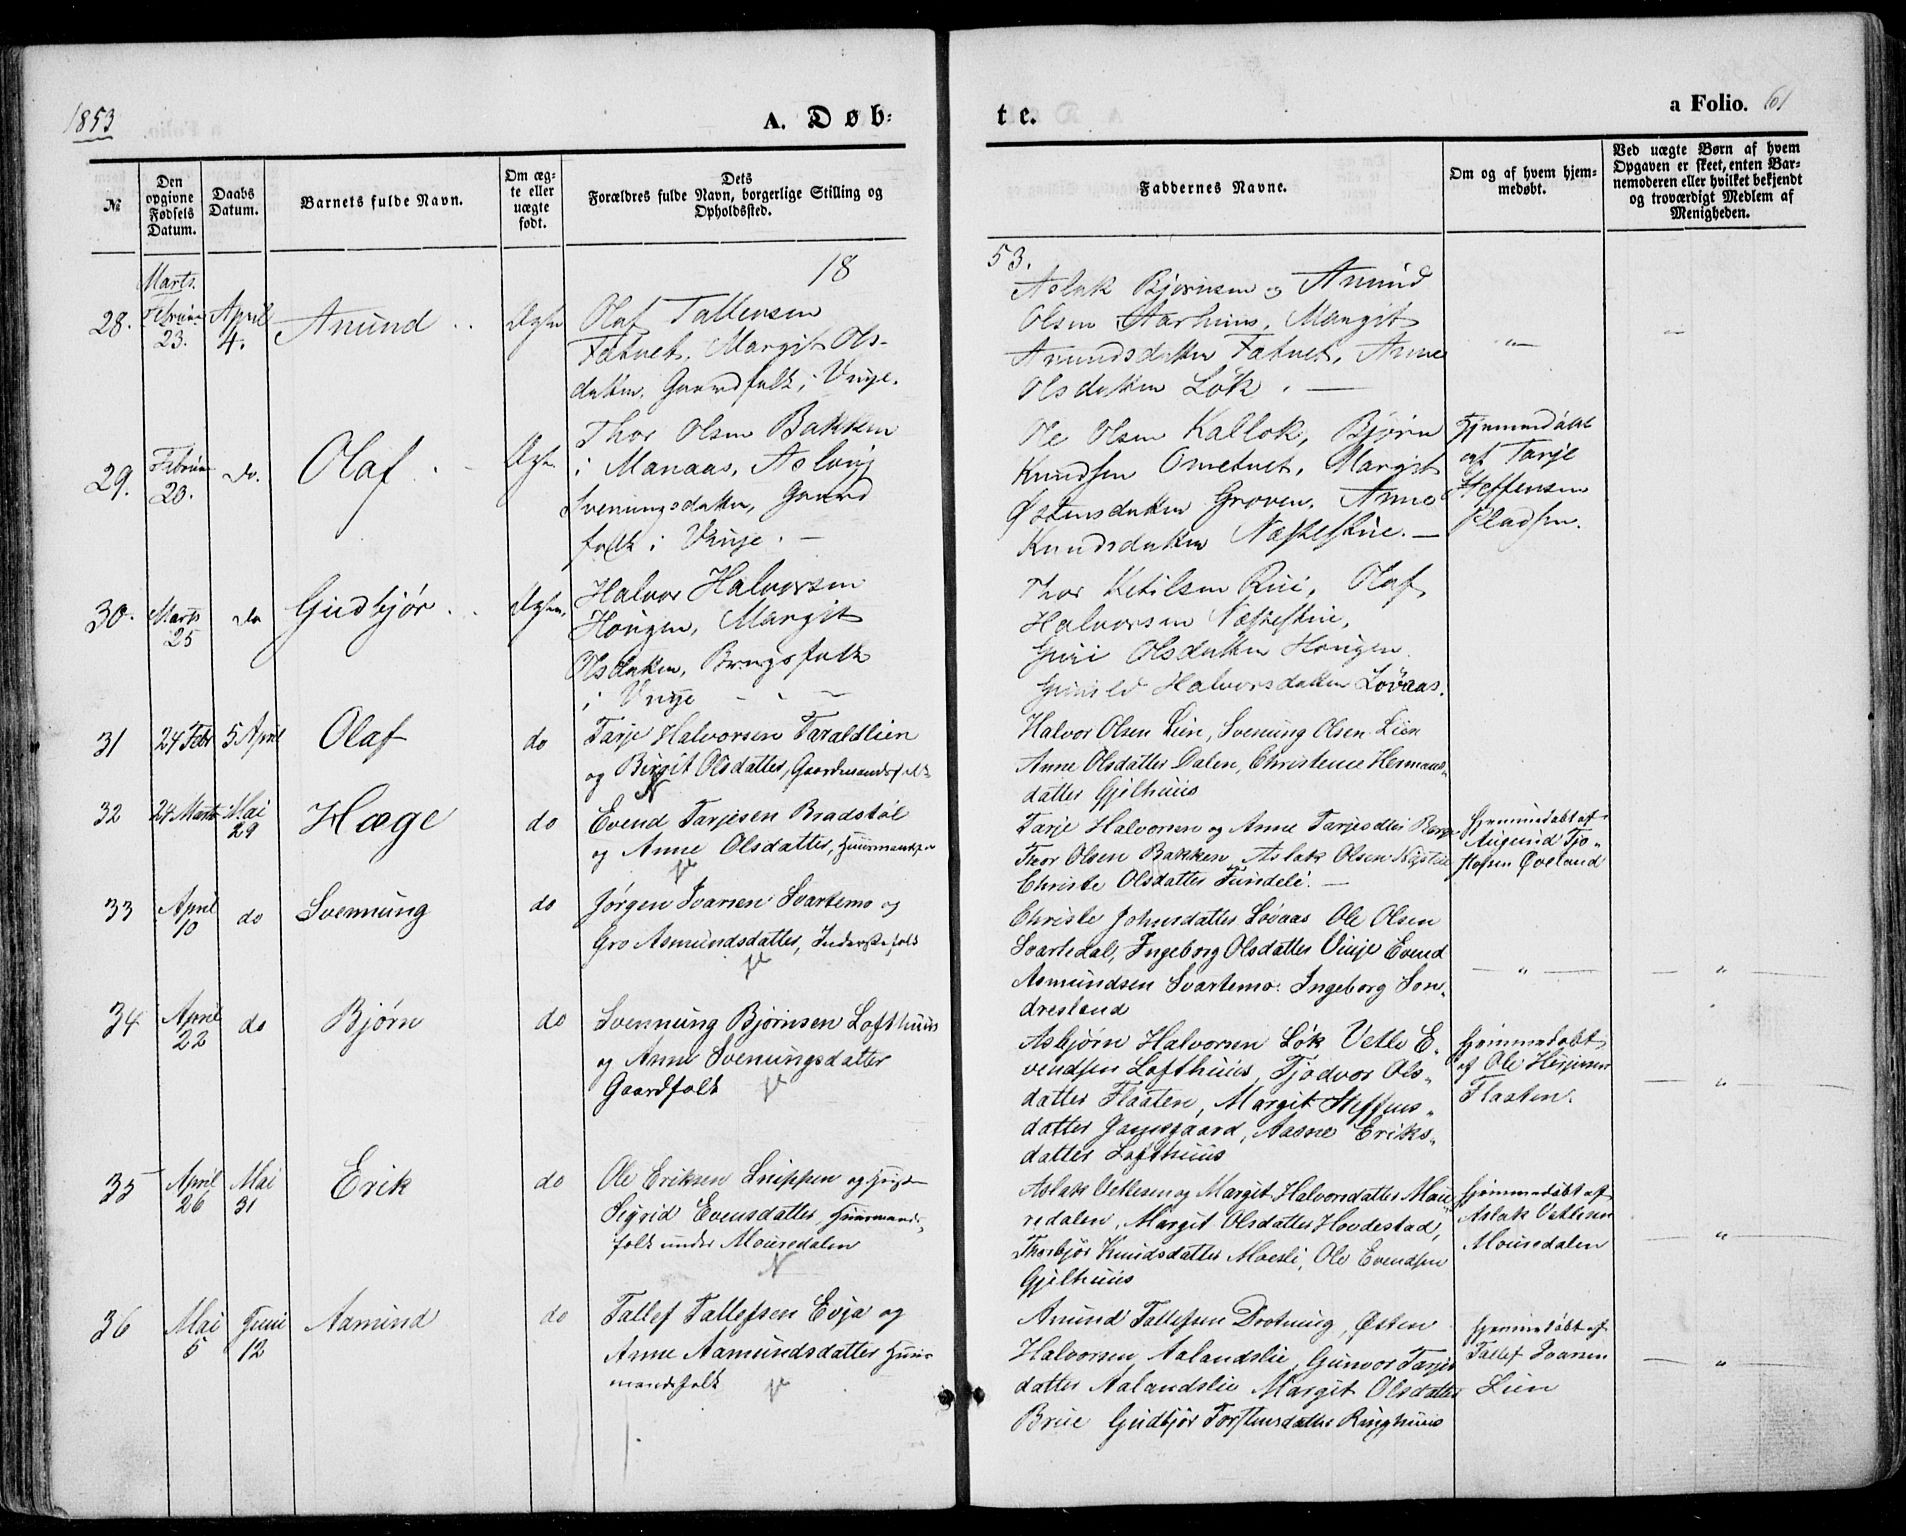 1853
A. Døb:
te.
a Folio. 61
№
Den opgivne Fødsels Datum.
Daabs Datum.
Barnets fulde Navn.
Om ægte eller uægte født.
Dets Forældres fulde Navn, borgerlige Stilling og Opholdssted.
Faddernes Navne.
Om og af hvem hjemmedøbt.
Ved uægte Børn af hvem Opgaven er skeet, enten Barnemoderen eller hvilket bekjendt og troværdigt Medlem af Menigheden.
1853.
Marts.
28. 23. April 4. Anund
Olaf Tallevsen
Fatnet, Margit Ols-
datter, Gaardfolk i Vinje.
Aslak Bjørnsen og Anund
Olsen Aarhuus, Margit
Anundsdatter Fatnet, Anne
Olsdatter Løk. —
29. 20. do. Olaf
Thor Olsen Bakken
i Manaas, Aslaug
Svenungsdatter, Gaard
folk i Vinje. —
Ole Olsen Kallok, Bjørn
Knudsen Ometvet, Margit
Østensdatter Groven, Anne
Knudsdatter Næstestue. —
Hjemmedøbt
af Tarje
Steffensen
Pladsen.
30. Marts 25 do Gudbjør
Halvor Halvorsen
Hougen, Margit
Olsdatter, Brugsfolk
i Vinje
Thor Ketilsen Rui, Olaf
Halvorsen Næstestue,
Guri Olsdatter Hougen
Gunild Halvorsdatter Løvaas.
31 24 Febr 5 April Olaf do
Tarje Halvorsen Taraldlien
og Birgit Olsdatter, Gaardmandsfolk
N
Halvor Olsen Lien, Svenung Olsen Lien
Anne Olsdatter Dalen, Christene Hermans-
datter Gjelhuus
32 24 Marts Mai 29 Hæge do
Evend Tarjesen Bradstøl
og Anne Olsdatter, Huusmandsfo
Tarje Halvorsen og Anne Tarjesdtter
Thor Olsen Bakken, Aslak Olsen
Christe Olsdatter Tundeli. —
Hjemmedøbt af
Augund Tjo-
stofsen Øveland
33 April 10 do Svennung do
Jørgen Ivarsen Svartemo og
Gro Asmundsdatter, Inderstefolk
Christe Johnsdatter Løvaas Ole Olsen
Svartedal, Ingeborg Olsdatter Vinje Evend
Asmundsen Svartemo. Ingeborg Son-
dresland
34 April 22 do Bjørn do
Svennung Bjørnsen Lofthuus
og Anne Svenungsdatter
Gaardfolk
Asbjørn Halvorsen Løk Vetle E-
vendsen Lofthuus, Tjodvor Ols-
datter Flaaten, Margit Steffens-
datter Jamsgaard, Aasne Eriks-
datter Lofthuus
Hjemmedøbt
af Ole
Flaaten.
35 April 26 Mai 31 Erik do
Ole Eriksen Snippen og
Sigrid Evensdatter, Huusmands-
folk under Mousedalen
N
Aslak Vetlesen og Margit Halvorsdatter Mou-
sedalen, Margit Olsdatter Hovdestad,
Thorbjør Knudsdatter Moesli, Ole Evendsen
Gjelhuus
Hjemmedøbt af
Aslak Vetlesen
Mousedalen
36 Mai 5 Juni 12 Aamund do
Tallef Tallefsen Evja og
Anne Aamundsdatter Huus-
mandsfolk
Anund Tallefsen Drotning, Østen
Halvorsen Aalandslie, Gunvor Tarjes
datter Aalandslie Margit Olsdatter
Brue Gudbjør Torstensdatter Ringhuus
Hjemmedøbt af
Tallef Ivarsen
Lien